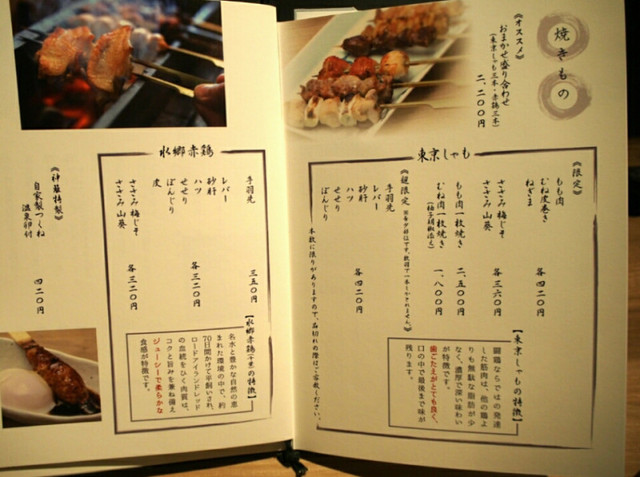 焼きもの
《オススメ》
おまかせ盛り合わせ
（東京しゃも三本・赤鶏三本）
二、二〇〇円
東京しゃも
《限定》
もも肉
むね皮巻き
ねぎま
各四二〇円
ささみ梅じそ
ささみ山葵
各三六〇円
もも肉一枚焼き
二、五〇〇円
むね肉一枚焼き
（柚子胡椒添え）
一、八〇〇円
手羽先
レバー
砂肝
ハツ
せせり
ぼんじり
各四二〇円
本数に限りがありますので、品切れの際はご容赦ください。
【東京しゃもの特徴】
闘鶏ならではの発達
した筋肉は、他の鶏よ
りも無駄な脂肪が少
なく、濃厚で深い味わい
が特徴です。
歯ごたえがとても良く、
口の中で最後まで味が
残ります。
水郷赤鶏
手羽先
三五〇円
レバー
砂肝
ハツ
せせり
ぼんじり
皮
各三二〇円
ささみ梅じそ
ささみ山葵
各三二〇円
【水郷赤鶏（千葉）の特徴】
名水と豊かな自然の恵
まれた環境の中で、約
70日間かけて平飼いされ、
ロードアイランドレッド
の血統をひく肉質は、
コクと旨みを兼ね備え
ジューシーで柔らかな
食感が特徴です。
自家製つくね
温泉卵付
四二〇円